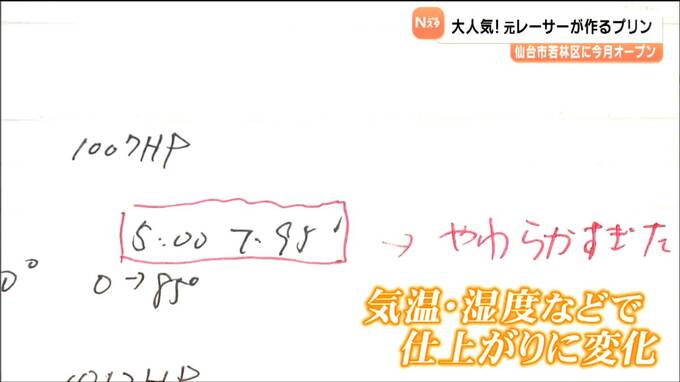 Nえる
大人気!元レーサーが作るプリン
仙台市若林区に今月オープン
1007HP
5:00 7:45'
→ やわらかすぎた
0° 0→850
気温・湿度などで
仕上がりに変化